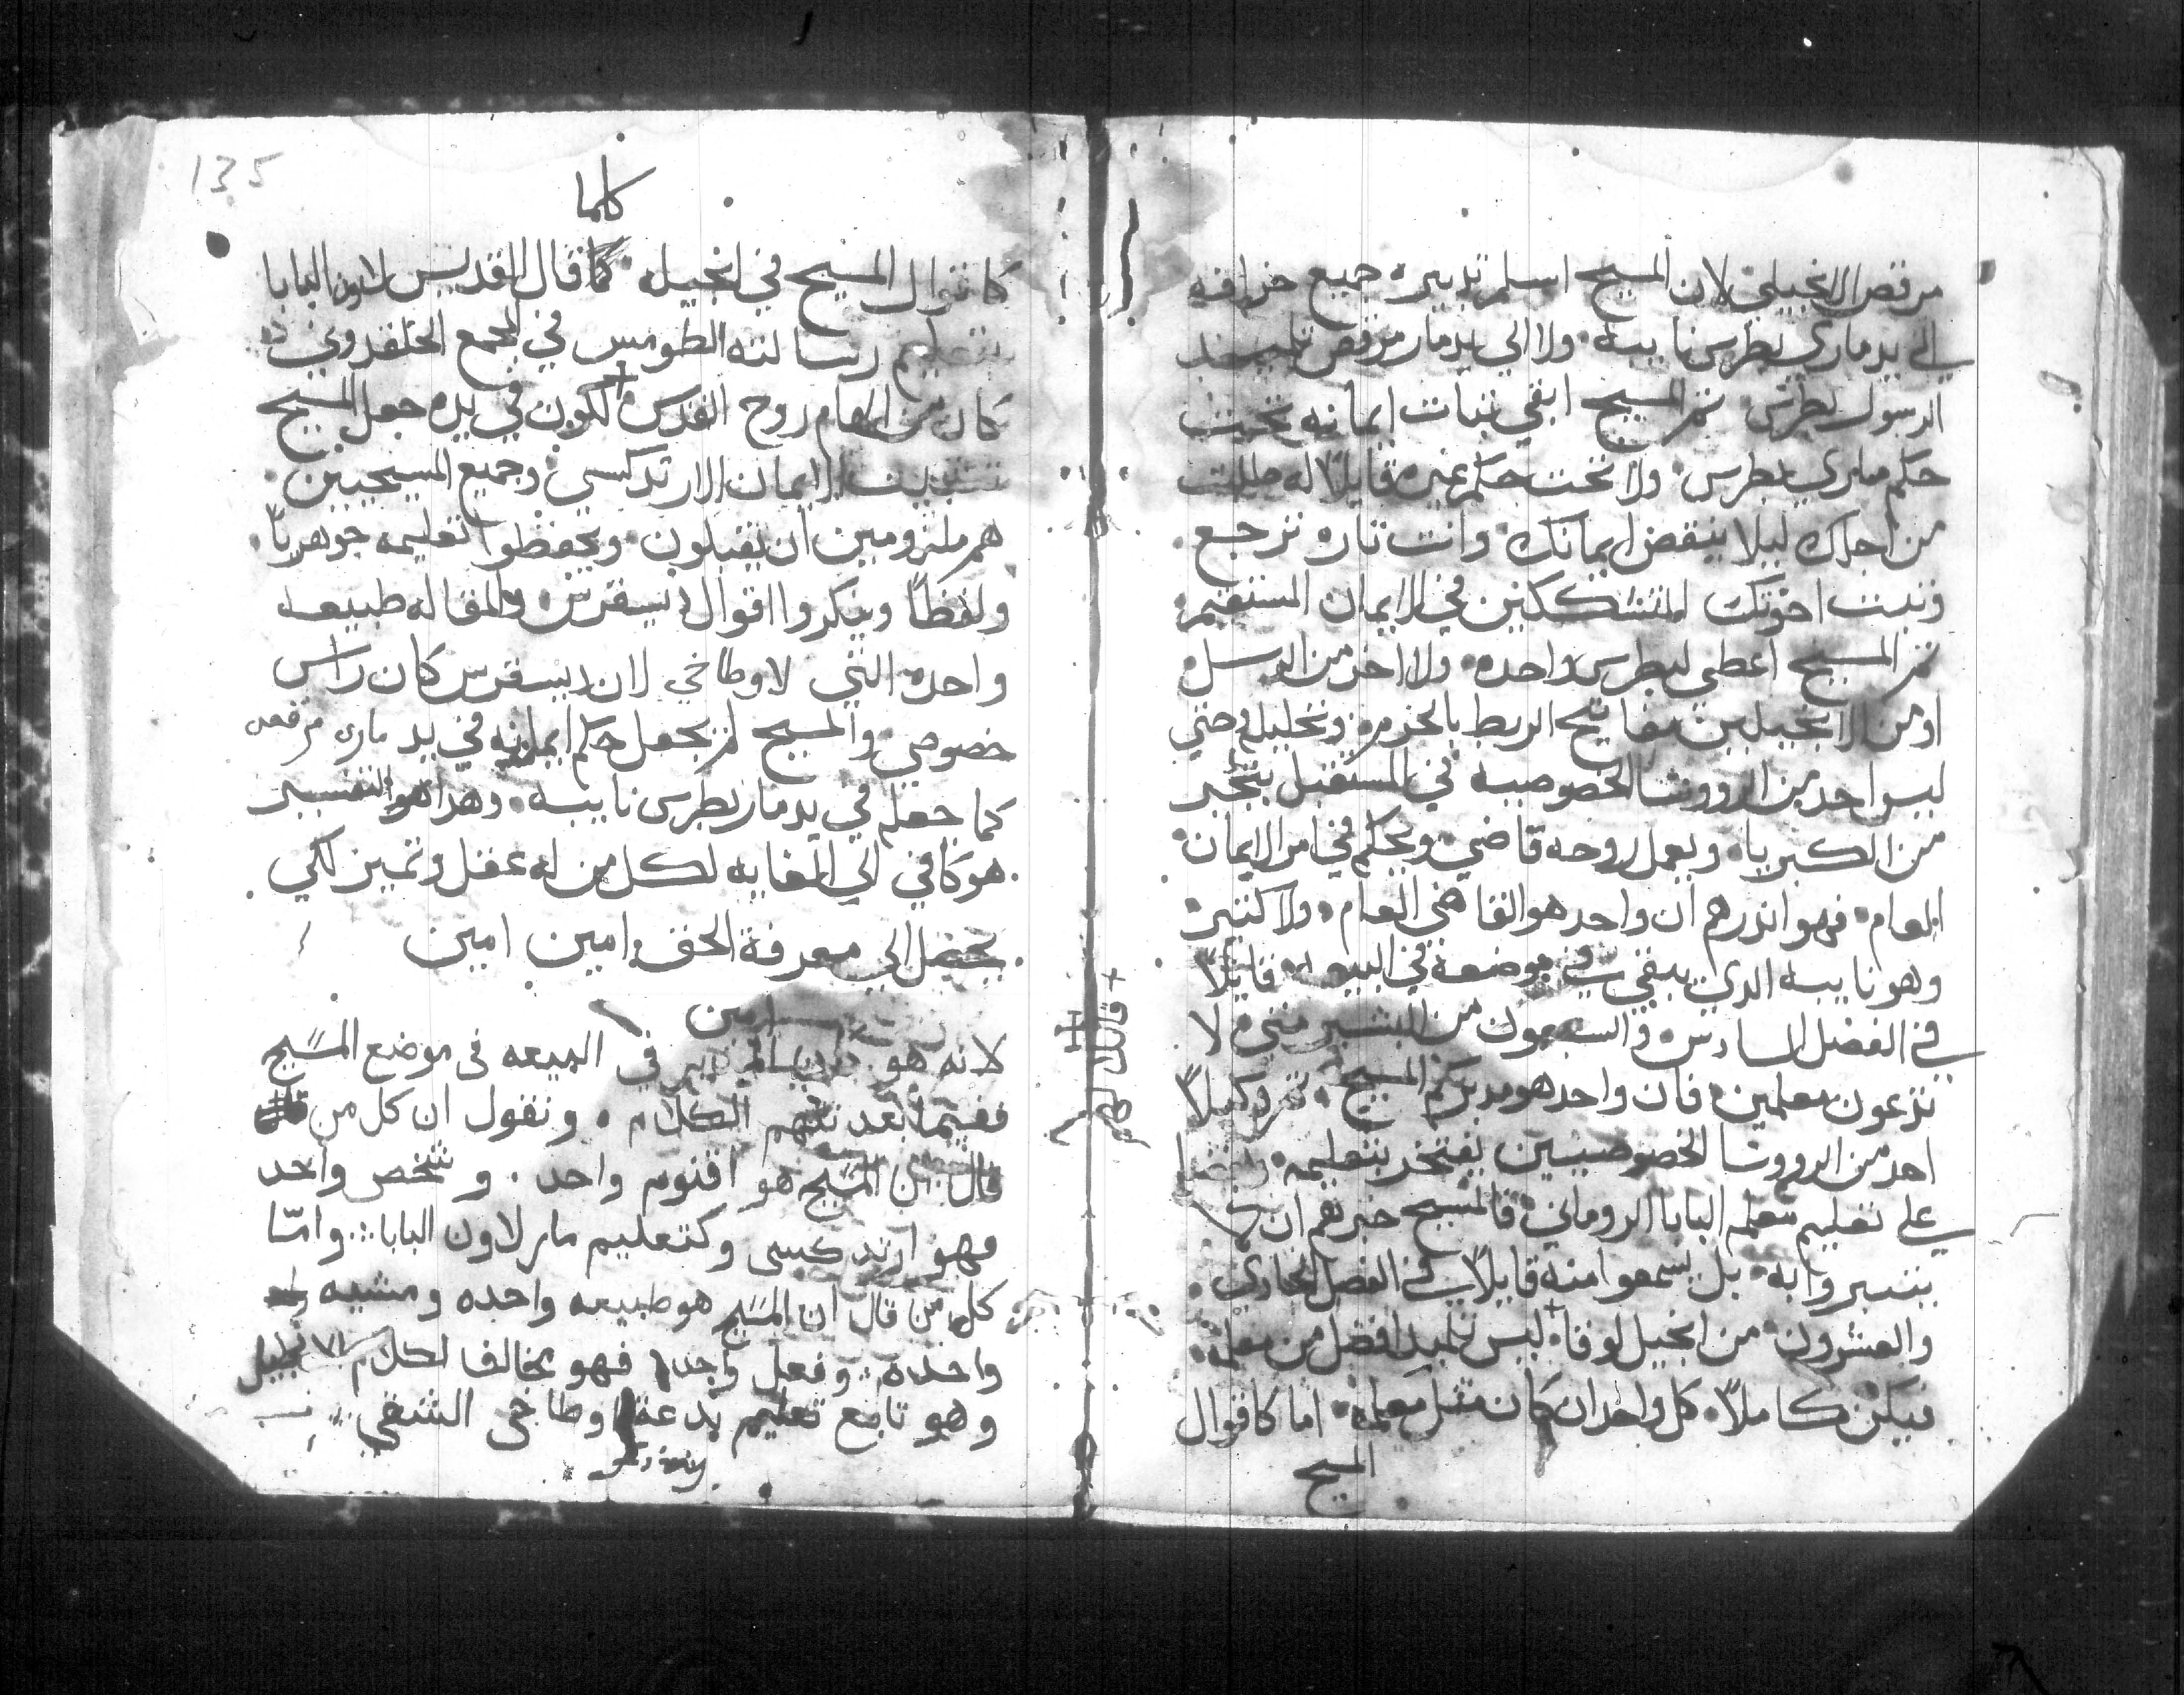 مرقص الانجيلي لان المسيح اسلم تدبير جميع خرافه
الي يد ماري بطرس نايبه ولا الي يد مار مرقص تلميد
الرسول بطرس تم المسيح ابقي تبات ايمانه تحت
حكم ماري بطرس ولا تحت حكم غيره قايلاً له طلبت
من اجلك ليلا ينقض ايمانك وانت تاره ترجع
وتبت اخوتك المتشككين في الايمان المستقيم
تم المسيح اعطي لبطرس واحده ولا اخر من الرسل
او من الانجيليين مفاتيح الربط بالحرم وتحليله حتي
ليس احد من الرووسا الخصوصيه في المستقبل يتجبر
من الكبريا ويعمل روحه قاضي ويحكم في امر الايمان
العام فهو اندرهم ان واحد هو القاضي العام ولا كتير
وهو نايبه الدي يبقي في موضعه في البيعه قايلاً
في الفصل السادس والسبعون من البشير متي لا
تدعون معلمين فان واحد هو مدبركم المسيح تم وكيلاً
احد من الرووسا الخصوصيين يفتخر بتعليمه
علي تعليم معلمه البابا الروماني فالمسيح خبرهم ان لا
يتبروا به بل يسمعوا منه قايلاً في الفصل الحادي
والعشرون من انجيل لوقا ليس تلميد افضل من معلمه
فيكن كاملاً كل واحد ان كان مثل معلمه اما كاقوال
المسيح
قال لكم
135
كلما
كاقوال المسيح في انجيله كما قال القديس لاون البابا
بتعليم رسالته الطومس في المجمع الخلقدوني
كان من الهام روح القدس لكون في يده جعل المسيح
تتبيت الايمان الارتدكسي وجميع المسيحيين
هم ملزومين ان يقبلون ويحفظوا تعليمه جوهرياً
ولفظاً وينكروا اقوال ديسقرس والمقاله طبيعه
واحده التي لاوطاخي لان ديسقرس كان راس
خصوصي والمسيح لم يجعل حكم ايمانه في يد ماري مرقص
كما جعله في يد مار بطرس نايبه وهدا هو التفسير
هو كافي الي الغايه لكل من له عقل وتميز لكي
يحصل الي معرفة الحق امين امين
امين
لانه هو في البيعه في موضع المسيح
ففيما بعد نتهم الكلام ونقول ان كل من
قال ان المسيح هو اقنوم واحد وشخص واحد
فهو ارتدكسي وكتعليم مار لاون البابا وامّا
كل من قال ان المسيح هو طبيعه واحده ومشيه
واحده وفعل واحد فهو يخالف لكلام الانجيل
وهو تابع تعليم بدعة اوطاخي الشقي